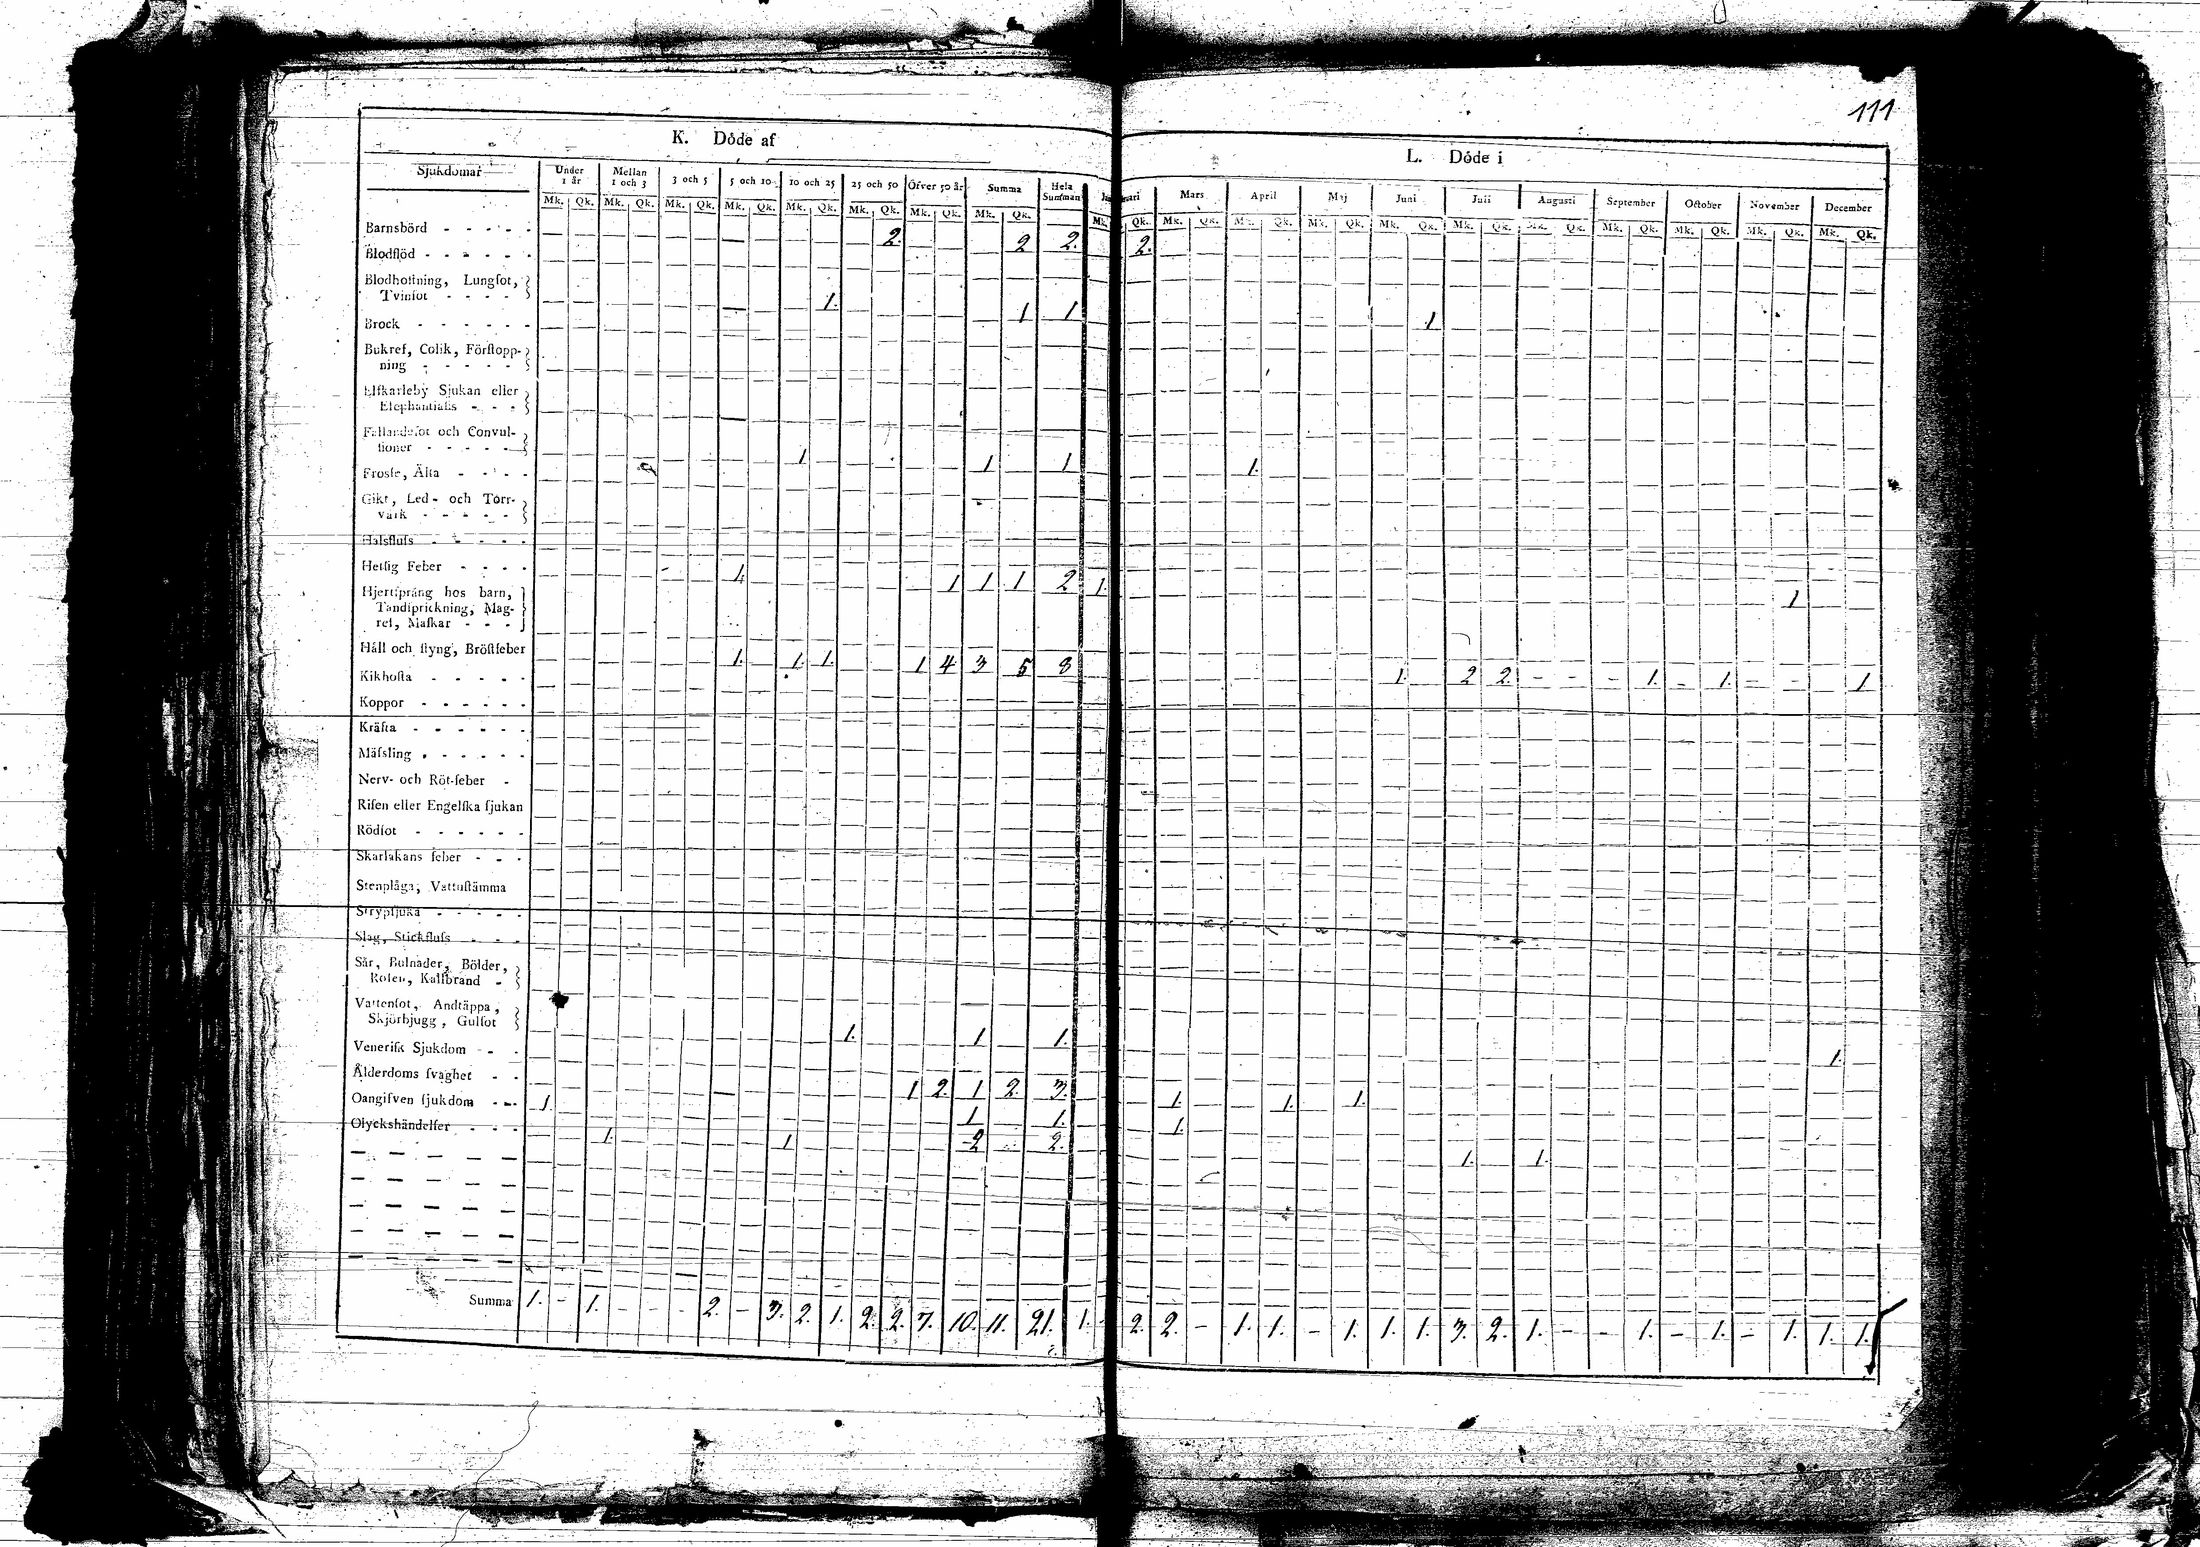 111
K. Döde af
L. Döde i
Sjukdomar | Under 1 år | Mellan 1 och 3 | 3 och 5 | 5 och 10 | 10 och 25 | 25 och 50 | Öfver 50 år | Summa | Hela Summan | Mars | April | Maj | Juni | Julii | Augusti | September | October | November | December
Mk. Qk. Mk. Qk. Mk. Qk. Mk. Qk. Mk. Qk. Mk. Qk. Mk. Qk. Mk. Qk. Mk. Qk. Mk. Qk. Mk. Qk. Mk. Qk. Mk. Qk. Mk. Qk. Mk. Qk. Mk. Qk. Mk. Qk. Mk. Qk. Mk. Qk.
Barnsbörd - - - - - 2. 2 2. 2.
Blodflöd - - - - - -
Blodhostning, Lungſot,
Tvinſot - - - - 1. 1 1 1
Brock - - - - - -
Bukref, Colik, Förſtopp-
ning - - - - -
Elfkarleby Sjukan eller
Elephantiaſis - - -
Fallandeſot och Convul-
ſioner - - - - - 1 1 1 1.
Froſſe, Älta - - - -
Gikt, Led- och Torr-
värk - - - - -
Halsfluſs - - - - -
Hetſig Feber - - - - 1 1 1 1 2 1. 1
Hjertſprång hos barn,
Tandſprickning, Mag-
ref, Maſkar - - -
Håll och ſtyng, Bröſtfeber 1. 1. 1. 1 4 3 5 8 1. 2 2. - - - 1. - 1. - - 1
Kikhoſta - - - - -
Koppor - - - - - -
Kräfta - - - - - -
Mäſsling - - - - -
Nerv- och Röt-feber -
Riſen eller Engelſka ſjukan
Rödſot - - - - - -
Skarlakans feber - - -
Stenplåga, Vattuſtämma
Strypſjuka - - - - -
Slag, Stickfluſs - - -
Sår, Bulnader, Bölder,
Roſen, Kallbrand -
Vattenſot, Andtäppa,
Skjörbjugg, Gulſot 1. 1 1. 1.
Veneriſk Sjukdom - -
Ålderdoms ſvaghet - - 1 2. 1 2. 3. 1. 1. 1.
Oangifven ſjukdom - - 1. 1 1. 1.
Olyckshändelſer - - - 1. 1 2 2. 1. 1.
Summa 1. - 1. - - - 2. - 3. 2. 1. 2. 2. 7. 10. 11. 21. 1. 2. 2. - 1. 1. - 1. 1. 1. 3. 2. 1. - - 1. - 1. - 1. 1. 1.